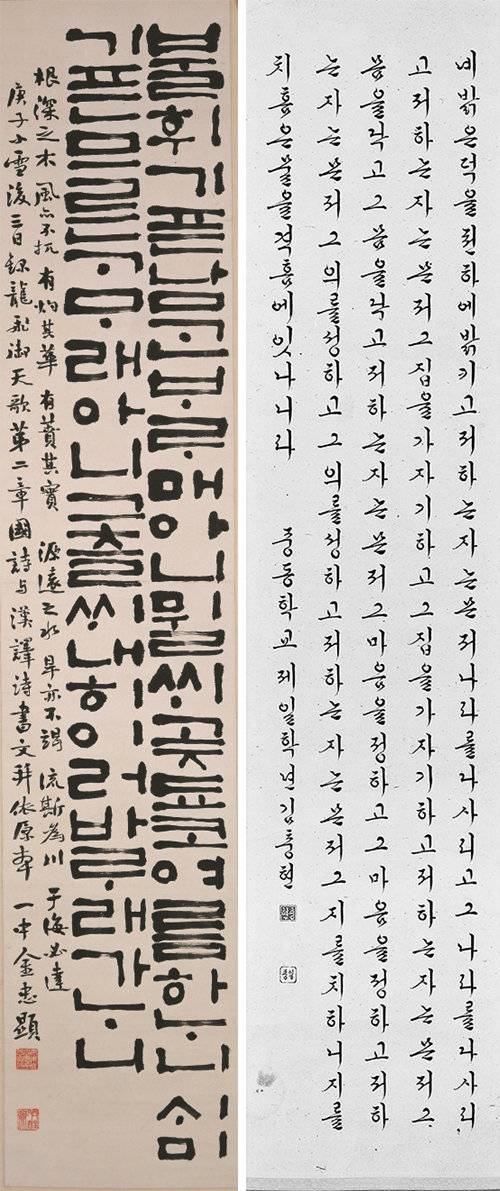 불휘기픈남ᄀᆞᆫᄇᆞᄅᆞ매아니뮐ᄊᆡ곶됴코여름하ᄂᆞ니ᄉᆡ미
기픈므른ᄀᆞᄆᆞ래아니그츨ᄊᆡ내히이러바ᄅᆞ래가ᄂᆞ니
根深之木 風亦不扤 有灼其華 有蕡其實 源遠之水 旱亦不竭 流斯爲川 于海必達
庚子小雪後三日錄龍飛御天歌第二章國詩与漢譯詩書文幷依原本 一中金忠顯
녜밝은덕을텬하에밝키고저하는자는몬저나라를다사리고그나라를다사리
고저하는자는몬저그집을가자기하고그집을가자기하고저하는자는몬저그
몸을닥고그몸을닥고저하는자는몬저그마음을정하고그마음을정하고저하
는자는몬저그의를성하고그의를성하고저하는자는몬저그지를치하니지를
치홈은물을격홈에잇나니라 중동학교제일학년김충현